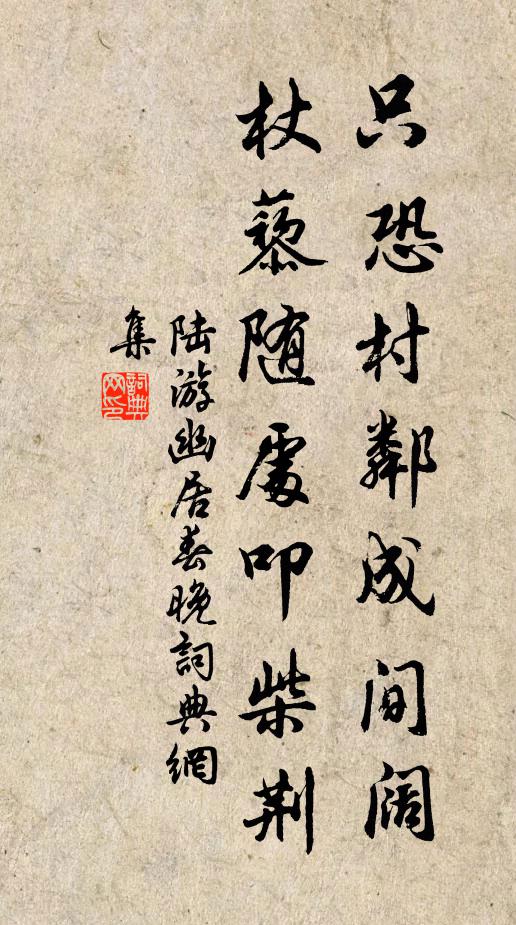 只恐村鄰成间阔
杖藜随處叩柴荆
陆游幽居春晚詞典網
集
詞典网印